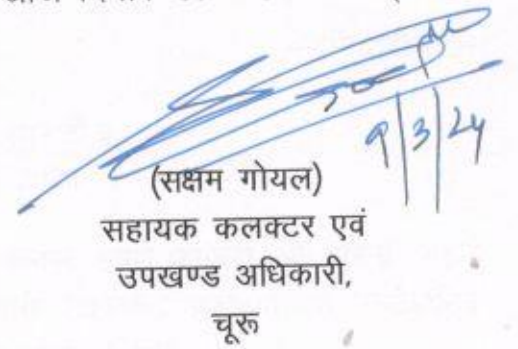 9/3/24
(सक्षम गोयल)
सहायक कलक्टर एवं
उपखण्ड अधिकारी,
चूरू